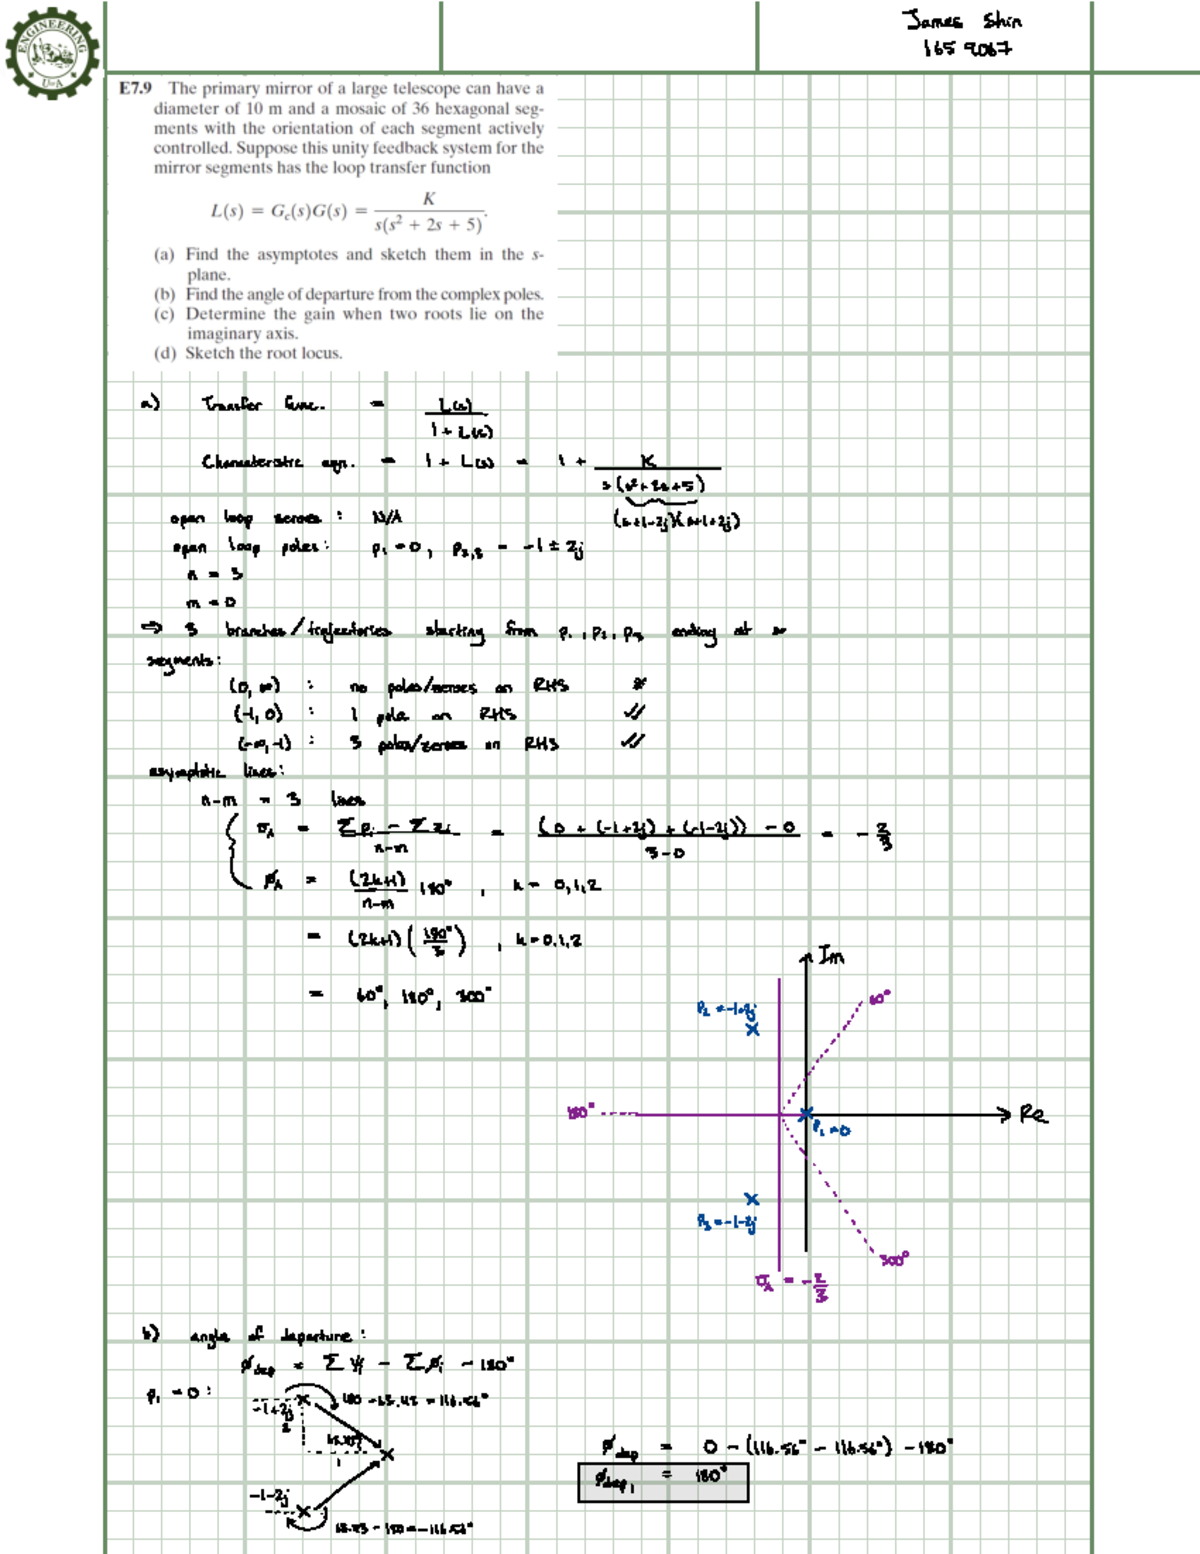 ENGINEERING
U of A
James Shin
165 9067
E7.9 The primary mirror of a large telescope can have a
diameter of 10 m and a mosaic of 36 hexagonal seg-
ments with the orientation of each segment actively
controlled. Suppose this unity feedback system for the
mirror segments has the loop transfer function
L(s) = G_c(s)G(s) = K / s(s² + 2s + 5).
(a) Find the asymptotes and sketch them in the s-
plane.
(b) Find the angle of departure from the complex poles.
(c) Determine the gain when two roots lie on the
imaginary axis.
(d) Sketch the root locus.
a) Transfer func. = L(s) / 1 + L(s)
Characteristic eqn. = 1 + L(s) = 1 + K / s(s²+2s+5)
(s+1-2j)(s+1+2j)
open loop zeroes : N/A
open loop poles : p₁ = 0, p₂,₃ = -1 ± 2j
n = 3
m = 0
⇒ 3 branches / trajectories starting from p₁, p₂, p₃ ending at ∞
segments :
(0, ∞) : no poles/zeroes on RHS
(-1, 0) : 1 pole on RHS ✓
(-∞, -1) : 3 poles/zeroes on RHS ✓
asymptotic lines :
n-m = 3 lines
σ_A = Σp_i - Σz_i / n-m = (0 + (-1+2j) + (-1-2j)) - 0 / 3-0 = -2/3
ϕ_A = (2k+1) / n-m 180°, k = 0,1,2
= (2k+1)(180°/3), k = 0,1,2
= 60°, 180°, 300°
Im
60°
p₂ = -1+2j
180°
Re
p₁ = 0
p₃ = -1-2j
300°
σ_A = -2/3
b) angle of departure :
ϕ_dep = Σψ_i - Σϕ_i - 180°
p₁ = 0 :
-1+2j
2
1
-1-2j
ϕ_dep = 0 - (116.56° - 116.56°) - 180°
ϕ_dep₁ = 180°